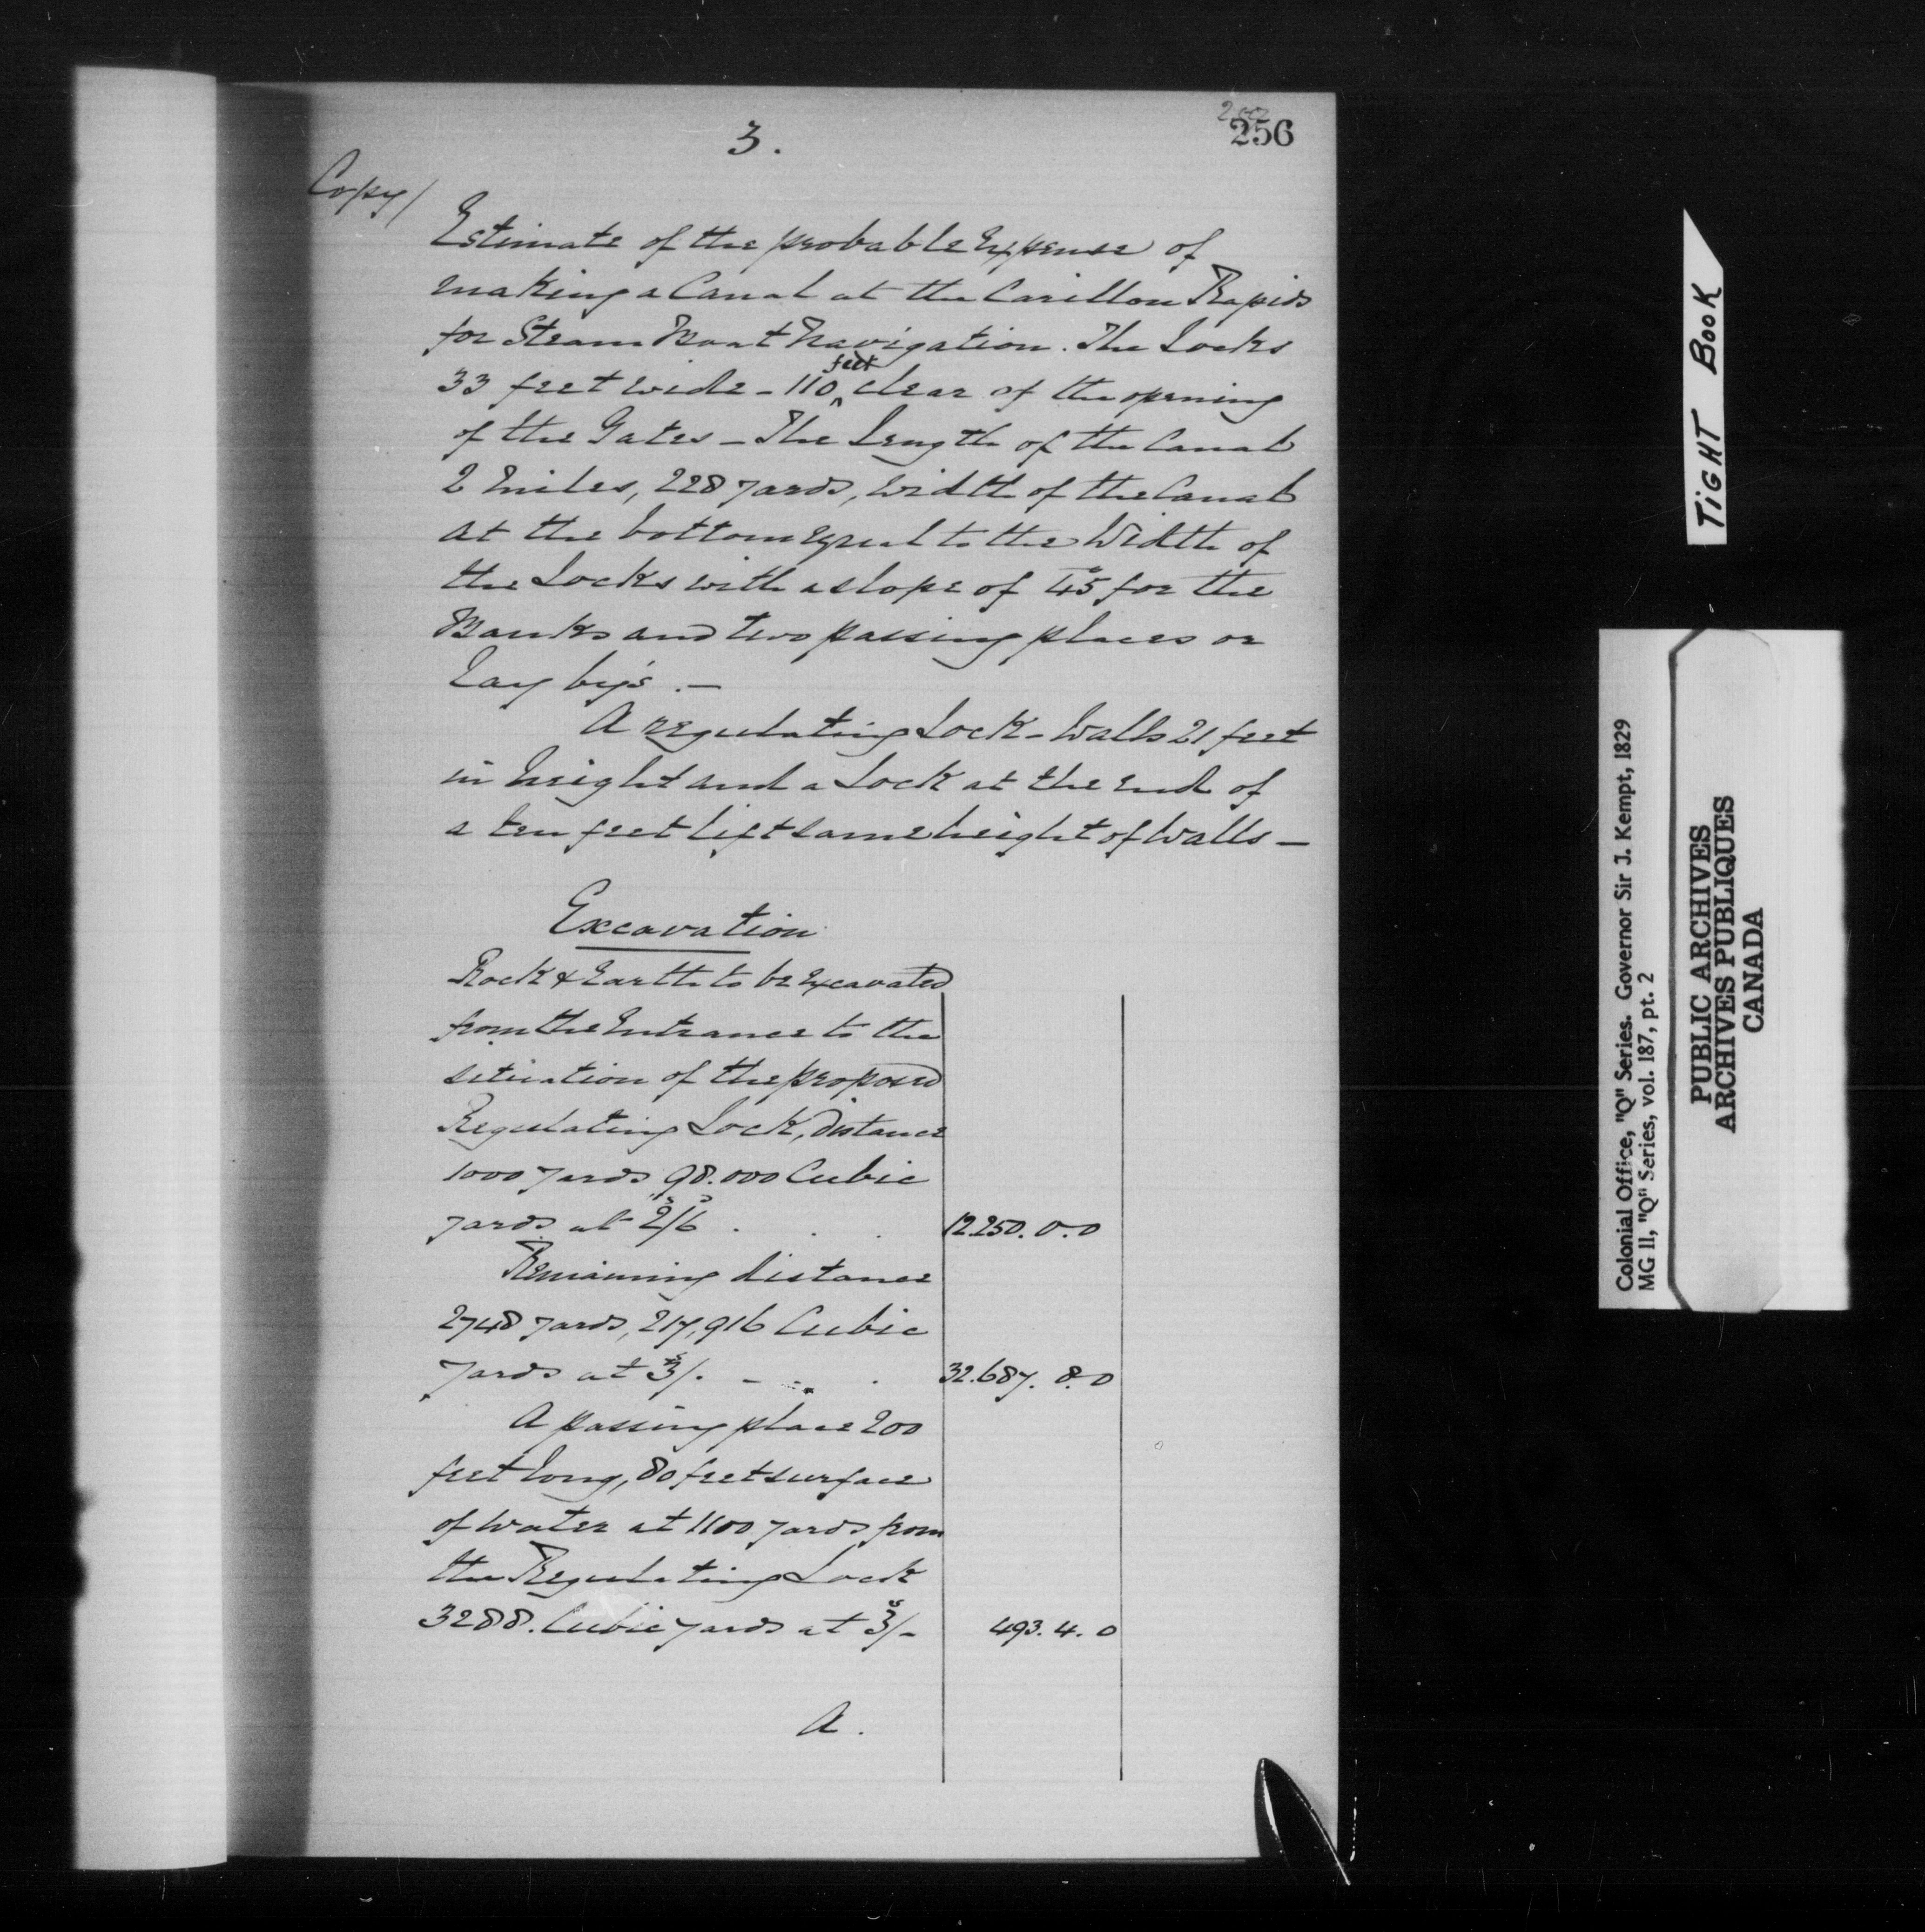 3.
256
Copy/
Estimate of the probable Expense of
making a Canal at the Carillon Rapids
for Steam Boat Navigation. The Locks
33 feet wide - 110 feet clear of the opening
of the Gates - The Length of the Canal
2 Miles, 228 yards, Width of the Canal
at the bottom Equal to the Width of
the Locks with a slope of 45° for the
Banks and two passing places or
Lay by's. -
A regulating Lock - Walls 21 feet
in height and a Lock at the End of
a ten feet lift same height of Walls -
Excavation
Rock & Earth to be Excavated
from the Entrance to the
situation of the proposed
Regulating Lock, distance
1000 yards 98.000 Cubic
yards at 2s/6d . . . 12.250. 0. 0
Remaining distance
2748 yards, 217,916 Cubic
Yards at 3s/. - . . 32.687. 8. 0
A passing place 200
feet long, 80 feet surface
of Water at 1100 yards from
the Regulating Lock
3288. Cubic yards at 3s/- 493. 4. 0
A.
TIGHT BOOK
Colonial Office, "Q" Series. Governor Sir J. Kempt, 1829
MG 11, "Q" Series, vol. 187, pt. 2
PUBLIC ARCHIVES
ARCHIVES PUBLIQUES
CANADA